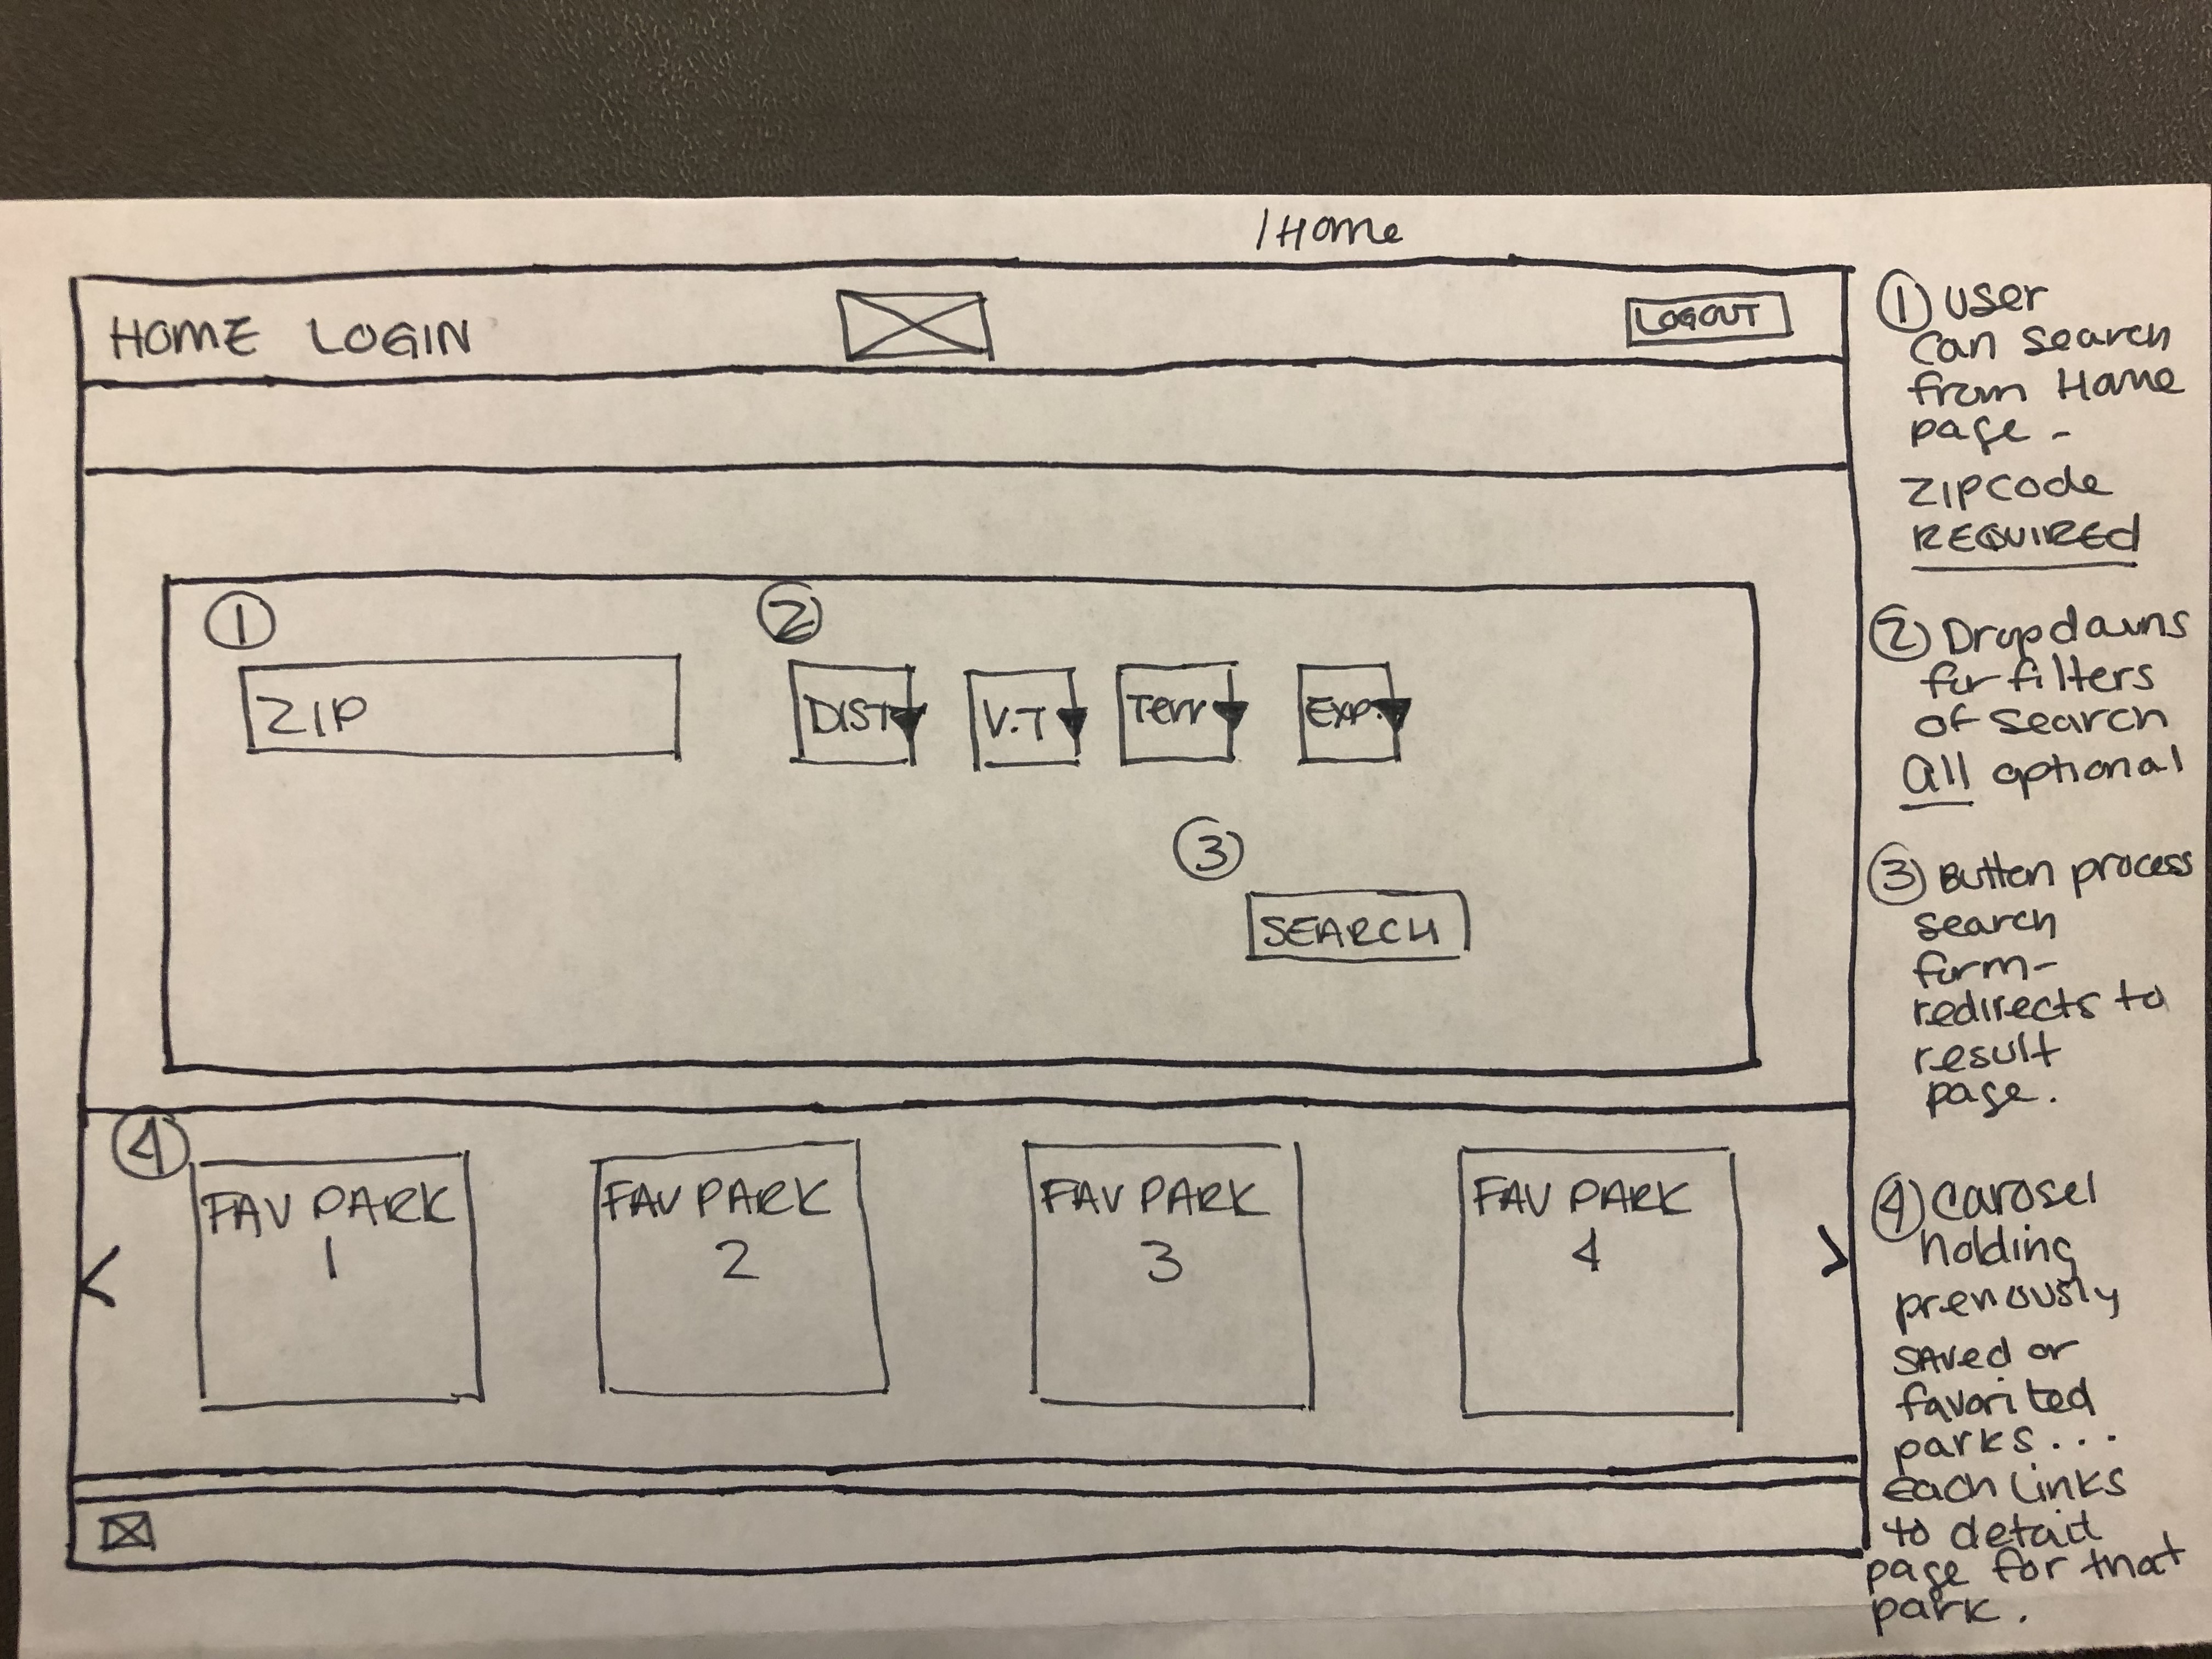 /Home
HOME LOGIN
LOGOUT
① ②
ZIP
DIST V.T Terr EXP.
③
SEARCH
④
FAV PARK
1
FAV PARK
2
FAV PARK
3
FAV PARK
4
① User
can search
from Home
page -
ZIPCODE
REQUIRED
② Dropdowns
for filters
of search
All optional
③ Button process
search
form-
redirects to
result
page.
④ Carosel
holding
previously
saved or
favorited
parks...
each links
to detail
page for that
park.